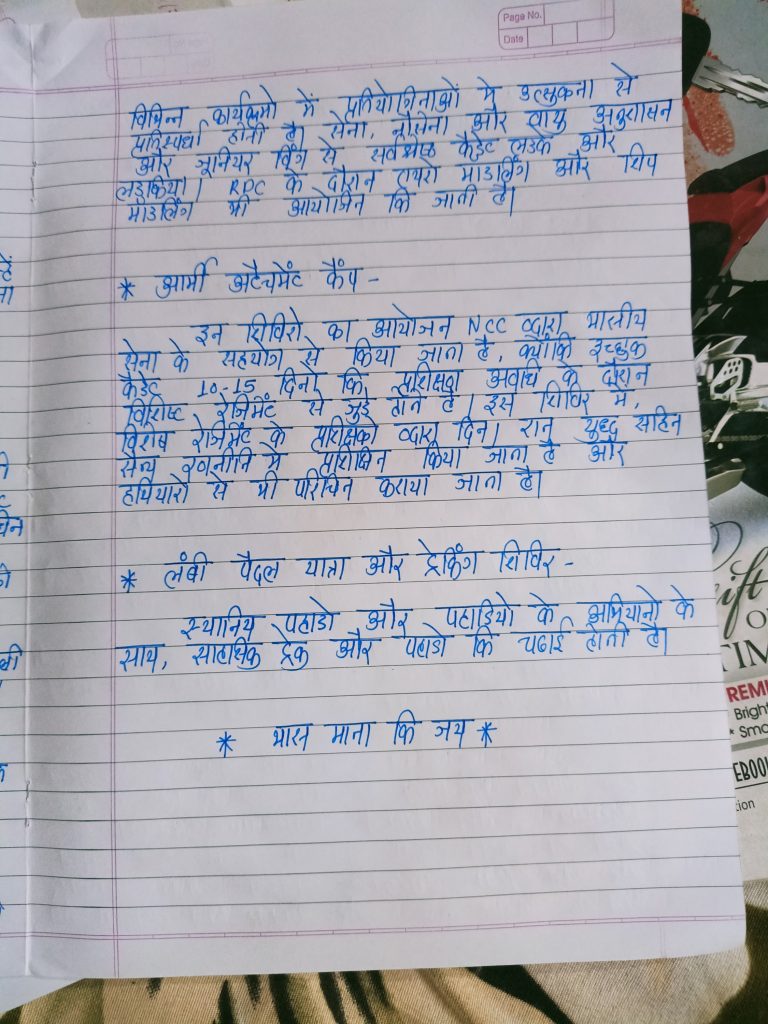 Page No.
Date
विभिन्न कार्यक्रमो में प्रतियोगिताओं मे उत्सुकता से
प्रतिस्पर्धा होती है। सेना, नौसेना और वायु अनुशासन
और जूनियर विंग से सर्वश्रेष्ठ कैडेट लडके और
लडकिया। RDC के दौरान एयरो माडलिंग और शिप
माडलिंग भी आयोजित कि जाती है।
* आर्मी अटैचमेंट कैंप -
इन शिविरो का आयोजन NCC व्दारा भारतीय
सेना के सहयोग से किया जाता है, क्योंकि इच्छुक
कैडेट 10-15 दिनो कि प्रशिक्षण अवधि के दौरान
विशिष्ट रेजिमेंट से जुडे होते है। इस शिविर मे,
विशेष रेजिमेंट के प्रशिक्षको व्दारा दिन। रात युध्द सहित
सैन्य रणनीति मे प्रशिक्षित किया जाता है और
हथियारो से भी परिचित कराया जाता है।
* लंबी पैदल यात्रा और ट्रेकिंग शिविर -
स्थानिय पहाडो और पहाडियो के अभियानो के
साथ, साहसिक ट्रेक और पहाडो कि चढाई होती है।
* भारत माता कि जय *
ift
REMI
Bright
EBOOK